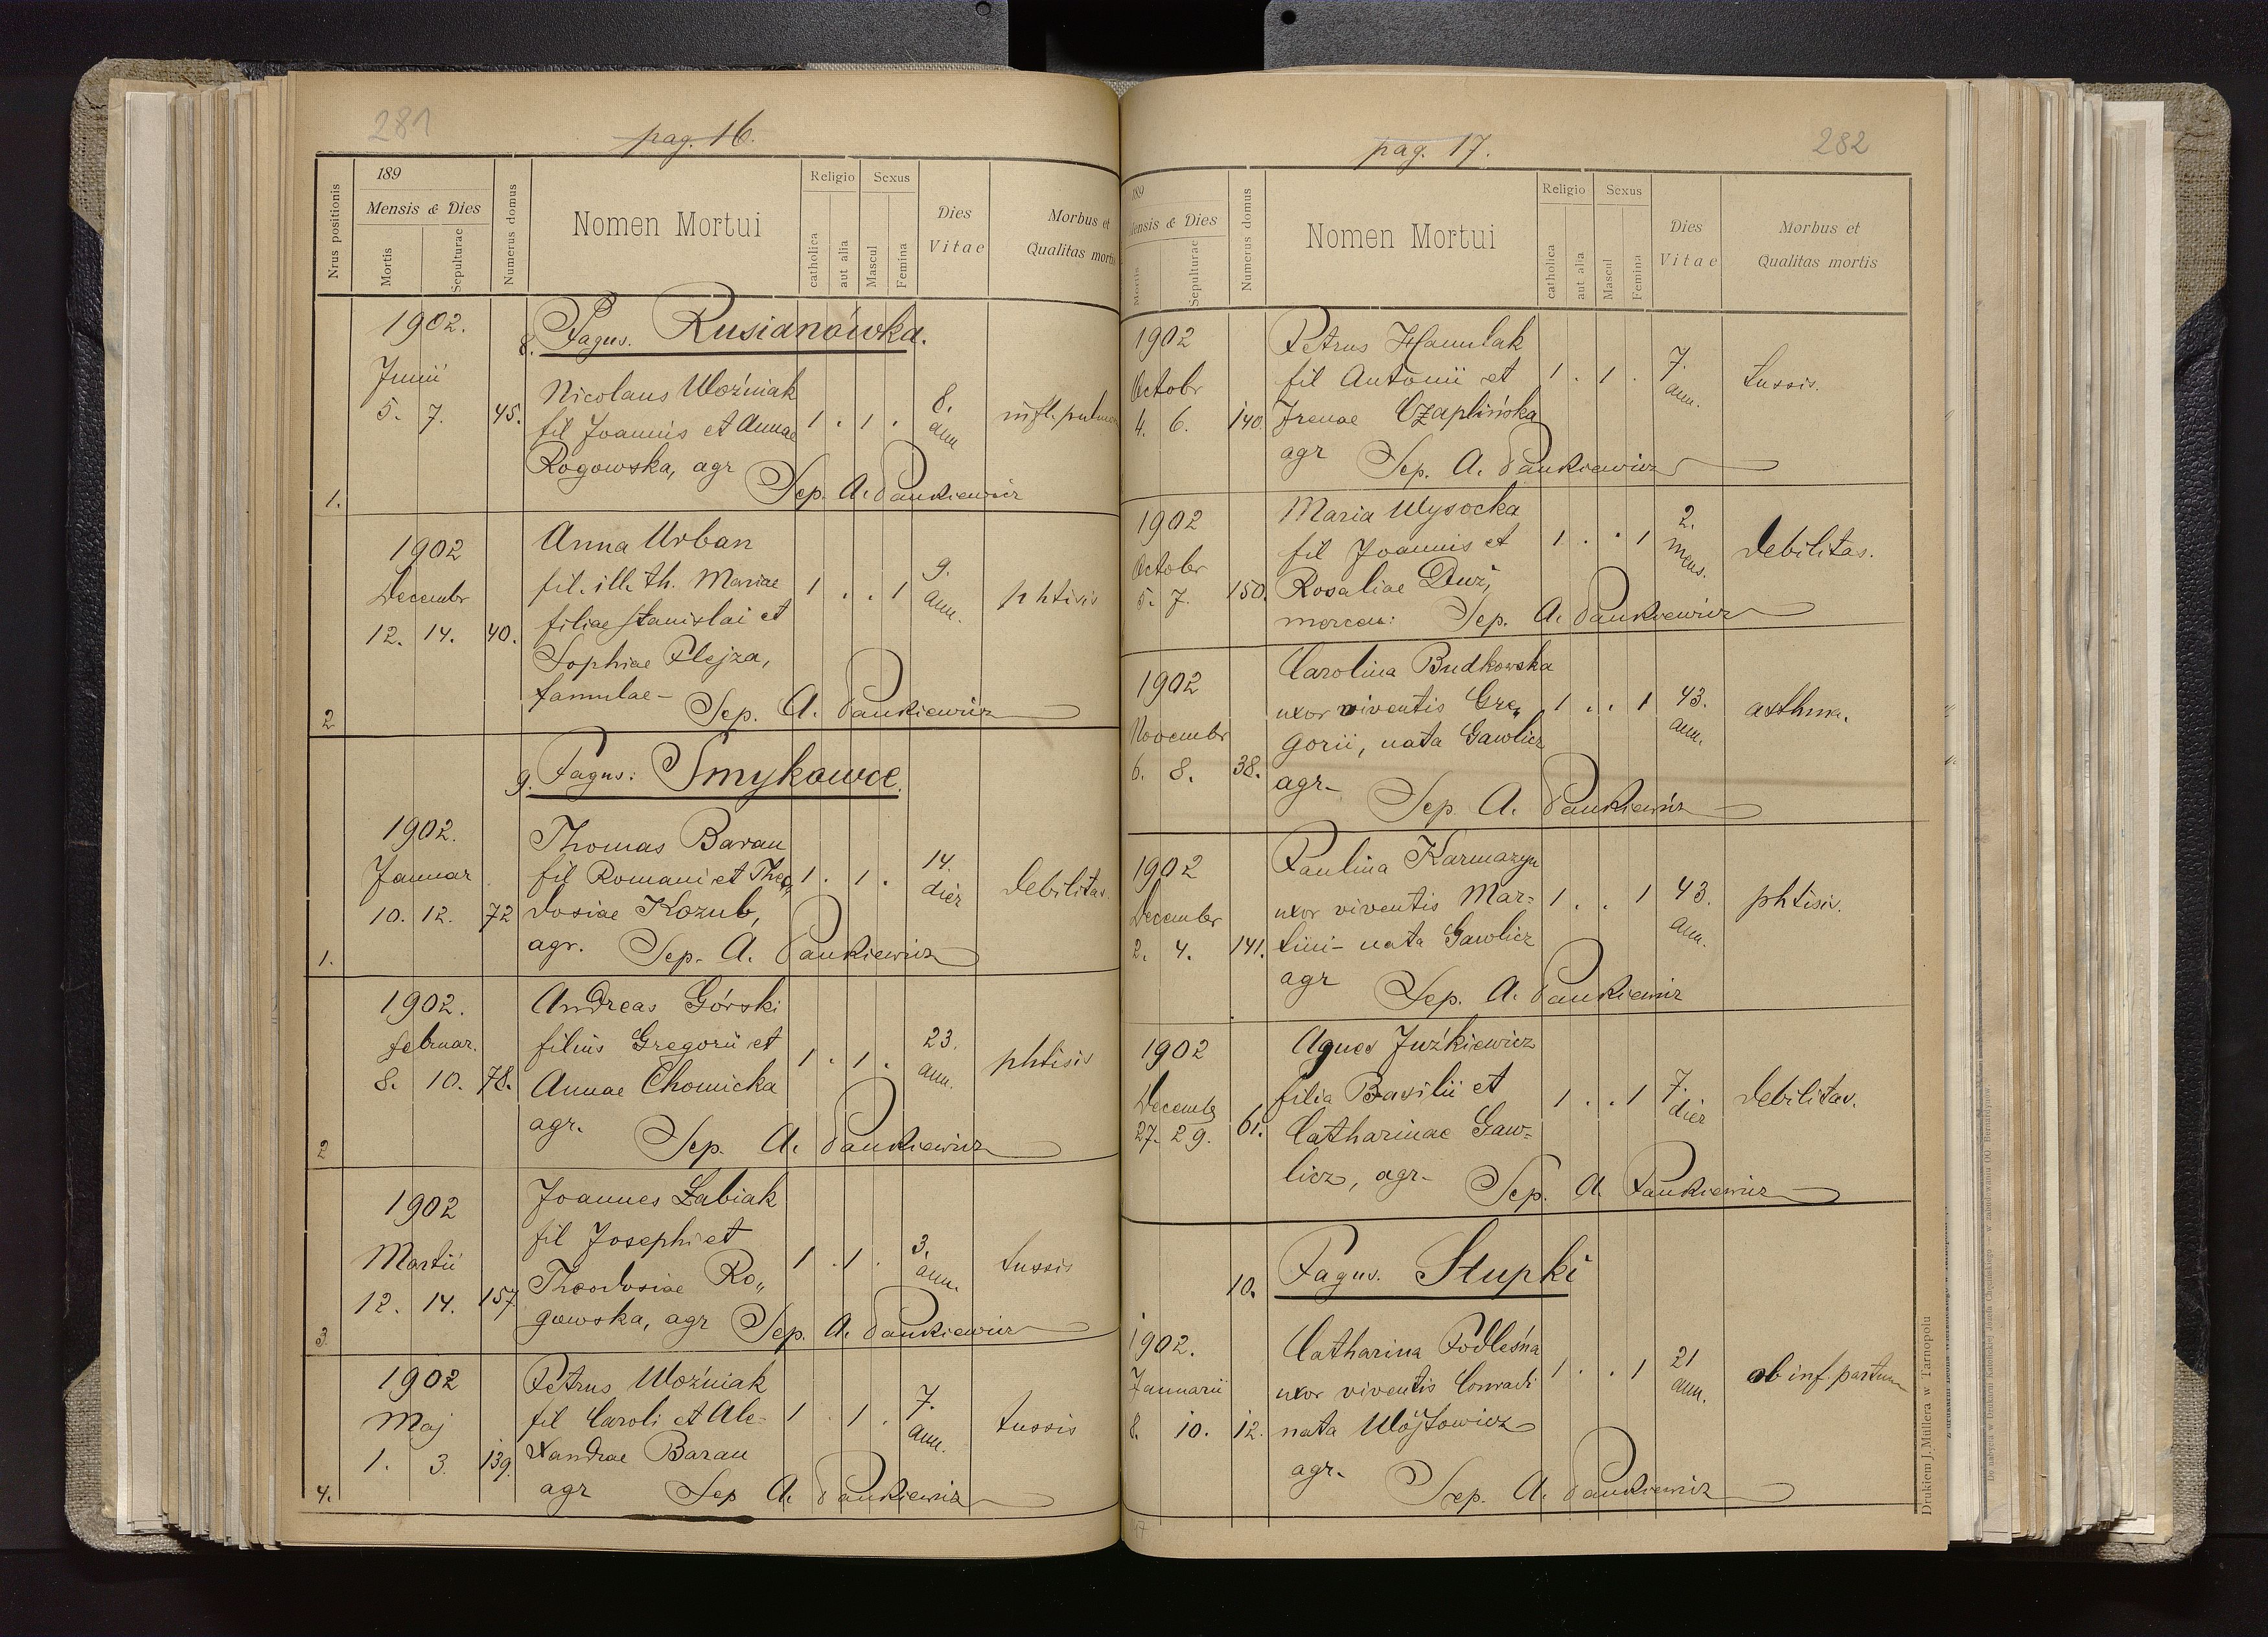 281
pag. 16.
Nrus positionis
189
Mensis & Dies
Mortis
Sepulturae
Numerus domus
Nomen Mortui
Religio
catholica
aut alia
Sexus
Mascul
Femina
Dies
Vitae
Morbus et
Qualitas mortis
8. Pagus. Rusianówka.
1902.
Junii
5. 7. 45.
Nicolaus Woźniak
fil Joannis et Annae
Rogowska, agr
1 . 1 .
8.
ann
infl. pulmon
Sep. A. Pankiewicz
1.
1902
Decembr
12. 14. 40.
Anna Urban
fil. ill. th. Mariae
filiae Stanislai et
Sophiae Plejza,
famulae-
1 . . 1
9.
ann.
phtisis
Sep. A. Pankiewicz
2
9. Pagus: Smykowce.
1902.
Januar
10. 12. 72
Thomas Baran
fil Romani et Theo„
dosiae Kozub,
agr.
1 . 1 .
14.
dier
debilitas.
Sep. A. Pankiewicz
1.
1902.
februar.
8. 10. 78.
Andreas Górski
filius Gregorii et
Annae Chomicka
agr.
1 . 1 .
23.
ann.
phtisis
Sep. A. Pankiewicz
2
1902
Martii
12. 14. 157
Joannes Łabiak
fil Josephi et
Theodosiae Ro„
gowska, agr
1 . 1 .
3.
ann.
tussis
Sep. A. Pankiewicz
3.
1902
Maj
1. 3. 139.
Petrus Woźniak
fil Caroli et Ale-
xandrae Baran
agr
1 . 1 .
7.
ann.
tussis
Sep A. Pankiewicz
4.
pag. 17.
282
189
Mensis & Dies
Mortis
Sepulturae
Numerus domus
Nomen Mortui
Religio
catholica
aut alia
Sexus
Mascul
Femina
Dies
Vitae
Morbus et
Qualitas mortis
1902
Octobr
4. 6. 140.
Petrus Hamulak
fil Antonii et
Irenae Czaplińska
agr
1 . 1 .
7.
ann.
tussis.
Sep. A. Pankiewicz
1902
Octobr
5. 7. 150.
Maria Wysocka
fil Joannis et
Rosaliae Duż,
mercen:
1 . . 1
2.
mens.
debilitas.
Sep. A. Pankiewicz
1902
Novembr
6. 8. 38.
Carolina Budkowska
uxor viventis Gre„
gorii, nata Gawlicz
agr-
1 . . 1
43.
ann.
asthma.
Sep. A. Pankiewicz
1902
Decembr
2. 4. 141.
Paulina Karmazyn
uxor viventis Mar=
tini- nata Gawlicz
agr
1 . . 1
43.
ann.
phtisis.
Sep. A. Pankiewicz
1902
Decemb
27. 29. 61.
Agnes Juźkiewicz
filia Basilii et
Catharinae Gaw=
licz, agr-
1 . . 1
7.
dier
debilitas.
Sep. A. Pankiewicz
10. Pagus. Stupki
1902.
Januarii
8. 10. 12.
Catharina Podleśna
uxor viventis Conradi
nata Wójtowicz
agr.
1 . . 1
21
ann.
ob inf. partum
Sep. A. Pankiewicz
17
Drukiem J. Müllera w Tarnopolu